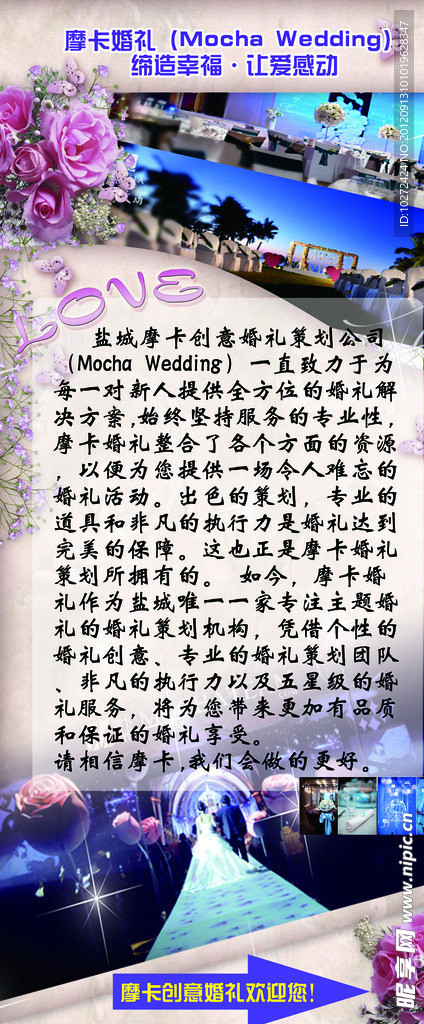 摩卡婚礼（Mocha Wedding）
缔造幸福·让爱感动
LOVE
盐城摩卡创意婚礼策划公司
（Mocha Wedding）一直致力于为
每一对新人提供全方位的婚礼解
决方案,始终坚持服务的专业性,
摩卡婚礼整合了各个方面的资源
，以便为您提供一场令人难忘的
婚礼活动。出色的策划，专业的
道具和非凡的执行力是婚礼达到
完美的保障。这也正是摩卡婚礼
策划所拥有的。 如今，摩卡婚
礼作为盐城唯一一家专注主题婚
礼的婚礼策划机构，凭借个性的
婚礼创意、专业的婚礼策划团队
、非凡的执行力以及五星级的婚
礼服务，将为您带来更加有品质
和保证的婚礼享受。
请相信摩卡,我们会做的更好。
摩卡创意婚礼欢迎您!
ID:10272424 NO:20120913101019628347
昵享网 www.nipic.cn